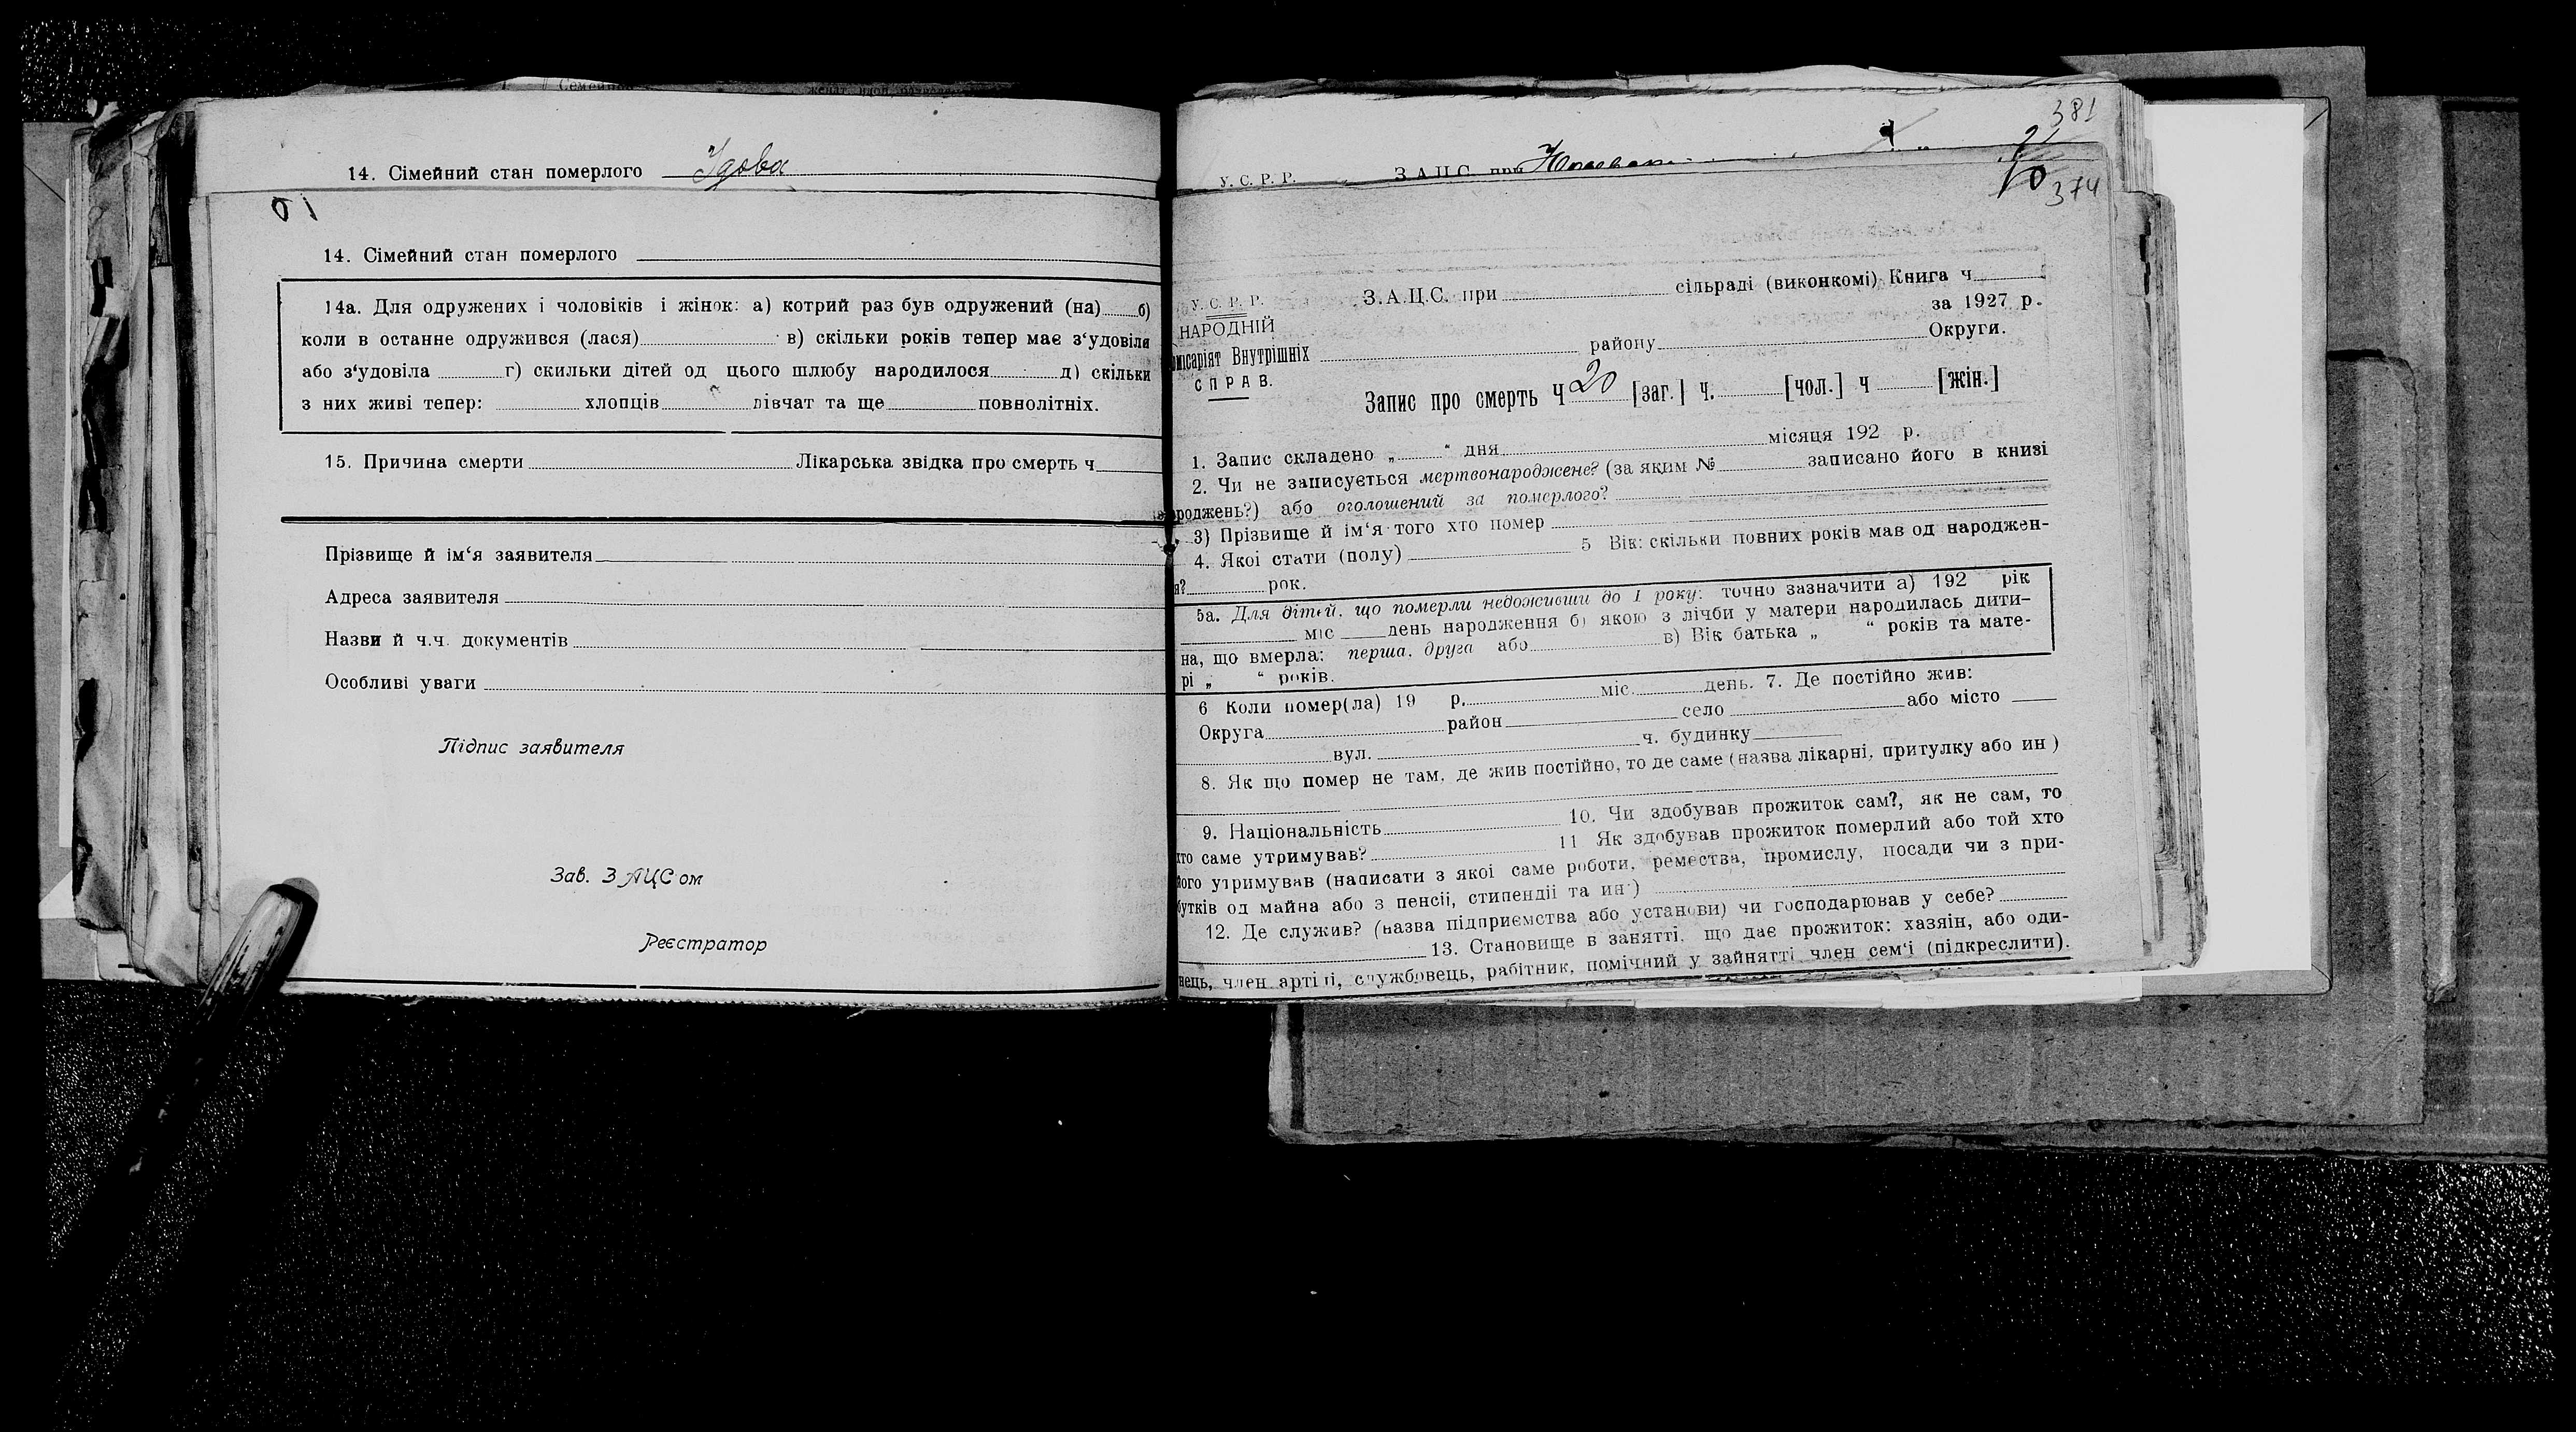 14. Сімейний стан померлого Удова
14. Сімейний стан померлого
14а. Для одружених і чоловіків і жінок: а) котрий раз був одружений (на) б)
коли в останне одружився (лася) в) скільки років тепер має з‘удовіла
або з‘удовіла г) скильки дітей од цього шлюбу народилося д) скільки
з них живі тепер: хлопців дівчат та ще повнолітніх.
15. Причина смерти Лікарська звідка про смерть ч
Прізвище й ім‘я заявителя
Адреса заявителя
Назви й ч.ч. документів
Особливі уваги
Підпис заявителя
Зав. ЗАЦСом
Реєстратор
381
У. С. Р. Р. З.А.Ц.С. при
10 374
У. С. Р. Р. З.А.Ц.С. при сільраді (виконкомі) Книга ч
НАРОДНІЙ за 1927 р.
місаріят Внутрішніх району Округи.
СПРАВ.
Запис про смерть Ч 20 [заг.] ч. [чол.] ч [жін.]
1. Запис складено „ “ дня місяця 192 р.
2. Чи не записується мертвонароджене? (за яким № записано його в книзі
роджень?) або оголошений за померлого?
3) Прізвище й ім‘я того хто помер
4. Якої стати (полу) 5 Вік: скільки повних років мав од народжен-
я? рок.
5а. Для дітей, що померли недоживши до 1 року: точно зазначити а) 192 рік
міс день народження б) якою з лічби у матери народилась дити-
на, що вмерла: перша, друга або в) Вік батька „ “ років та мате-
рі „ “ років.
6 Коли помер(ла) 19 р. міс. день. 7. Де постійно жив:
Округа район село або місто
вул. ч. будинку
8. Як що помер не там, де жив постійно, то де саме (назва лікарні, притулку або ин)
9. Національність 10. Чи здобував прожиток сам?, як не сам, то
хто саме утримував? 11 Як здобував прожиток померлий або той хто
його утримував (написати з якої саме роботи, ремества, промислу, посади чи з при-
бутків од майна або з пенсії, стипендії та ин.)
12. Де служив? (назва підприємства або установи) чи господарював у себе?
13. Становище в занятті, що дає прожиток: хазяін, або оди-
нець, член артілі, службовець, рабітник, помічний у зайнятті член сем‘і (підкреслити).